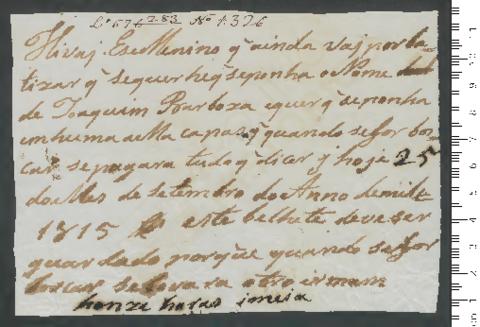 Lº 676 283 Nº 1376
Hi vaj Ese Menino q̃ ainda vaj por ba
tizar q̃ se quer he q̃ se ponha o Nome
de Joaquim Barboza e quer q̃ se ponha
em huma a Ma capas q̃ quando se for bos
car se pagara tudo q̃ dicer j hoje 25
do Mes de Setembro do Anno de mil e
1815 este belhete deve ser
guardado porque quando se for
boscar se lovara otro irmam
honze horas i meia